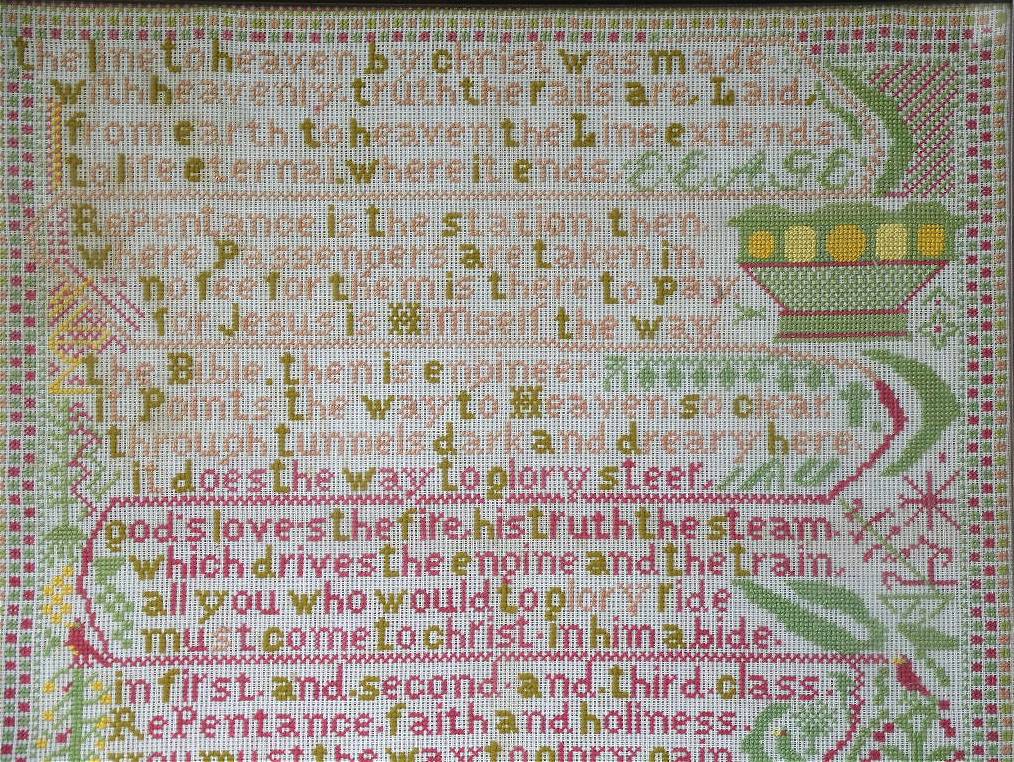 the line to heaven by christ was made
with heavenly truth the rails are. Laid,
from earth to heaven the Line extends.
to life eternal. where it ends.
RePentance is the station then
where Passengers are taken in
no fee for them is there to pay
for Jesus is Himself the way.
the Bible. then is engineer
it Points the way to Heaven. so clear.
through tunnels dark and dreary here
it does the way to glory steer.
god's love. s the fire. his truth the steam.
which drives the engine and the train,
all you who would to glory ride
must come to christ. in him abide.
in first. and. second. and. third. class.
RePentance. faith and holiness
you must the way to glory gain